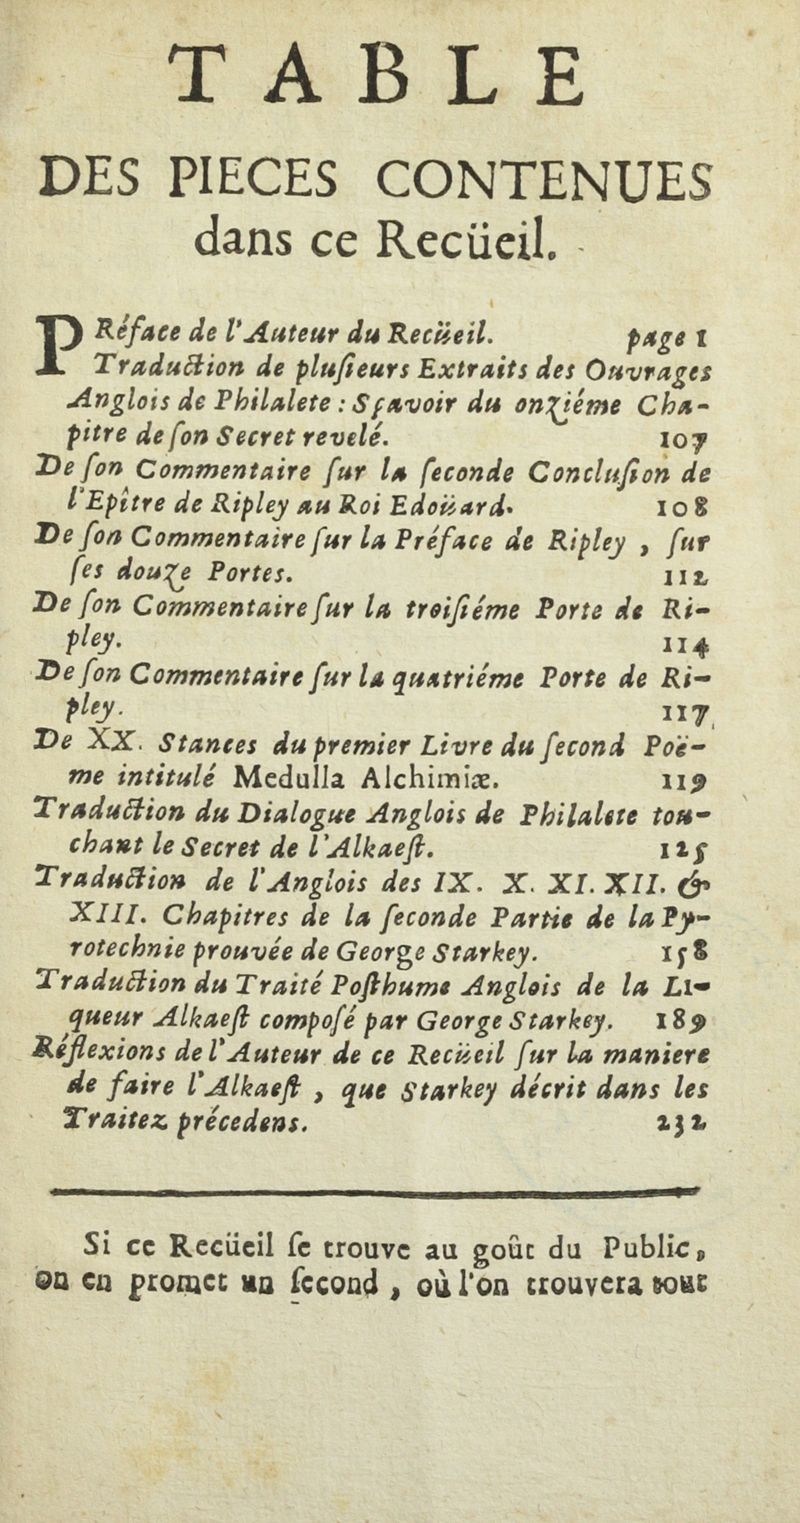 TABLE
DES PIECES CONTENUES
dans ce Recüeil.
PRéface de l'Auteur du Recüeil. page 1
Traduction de pluſieurs Extraits des Ouvrages
Anglois de Philalete : Sçavoir du onziéme Cha-
pitre de ſon Secret revelé. 107
De ſon Commentaire ſur la ſeconde Concluſion de
l'Epître de Ripley au Roi Edoüard. 108
De ſon Commentaire ſur la Préface de Ripley , ſur
ſes douze Portes. 112
De ſon Commentaire ſur la troiſiéme Porte de Ri-
pley. 114
De ſon Commentaire ſur la quatriéme Porte de Ri-
pley. 117
De XX. Stances du premier Livre du ſecond Poë-
me intitulé Medulla Alchimiæ. 119
Traduction du Dialogue Anglois de Philalete tou-
chant le Secret de l'Alkaeſt. 125
Traduction de l'Anglois des IX. X. XI. XII. &
XIII. Chapitres de la ſeconde Partie de la Py-
rotechnie prouvée de George Starkey. 158
Traduction du Traité Poſthume Anglois de la Li-
queur Alkaeſt compoſé par George Starkey. 189
Réflexions de l'Auteur de ce Recüeil ſur la maniere
de faire l'Alkaeſt , que Starkey décrit dans les
Traitez précedens. 232
Si ce Recüeil ſe trouve au goût du Public,
on en promet un ſecond , où l'on trouvera tout